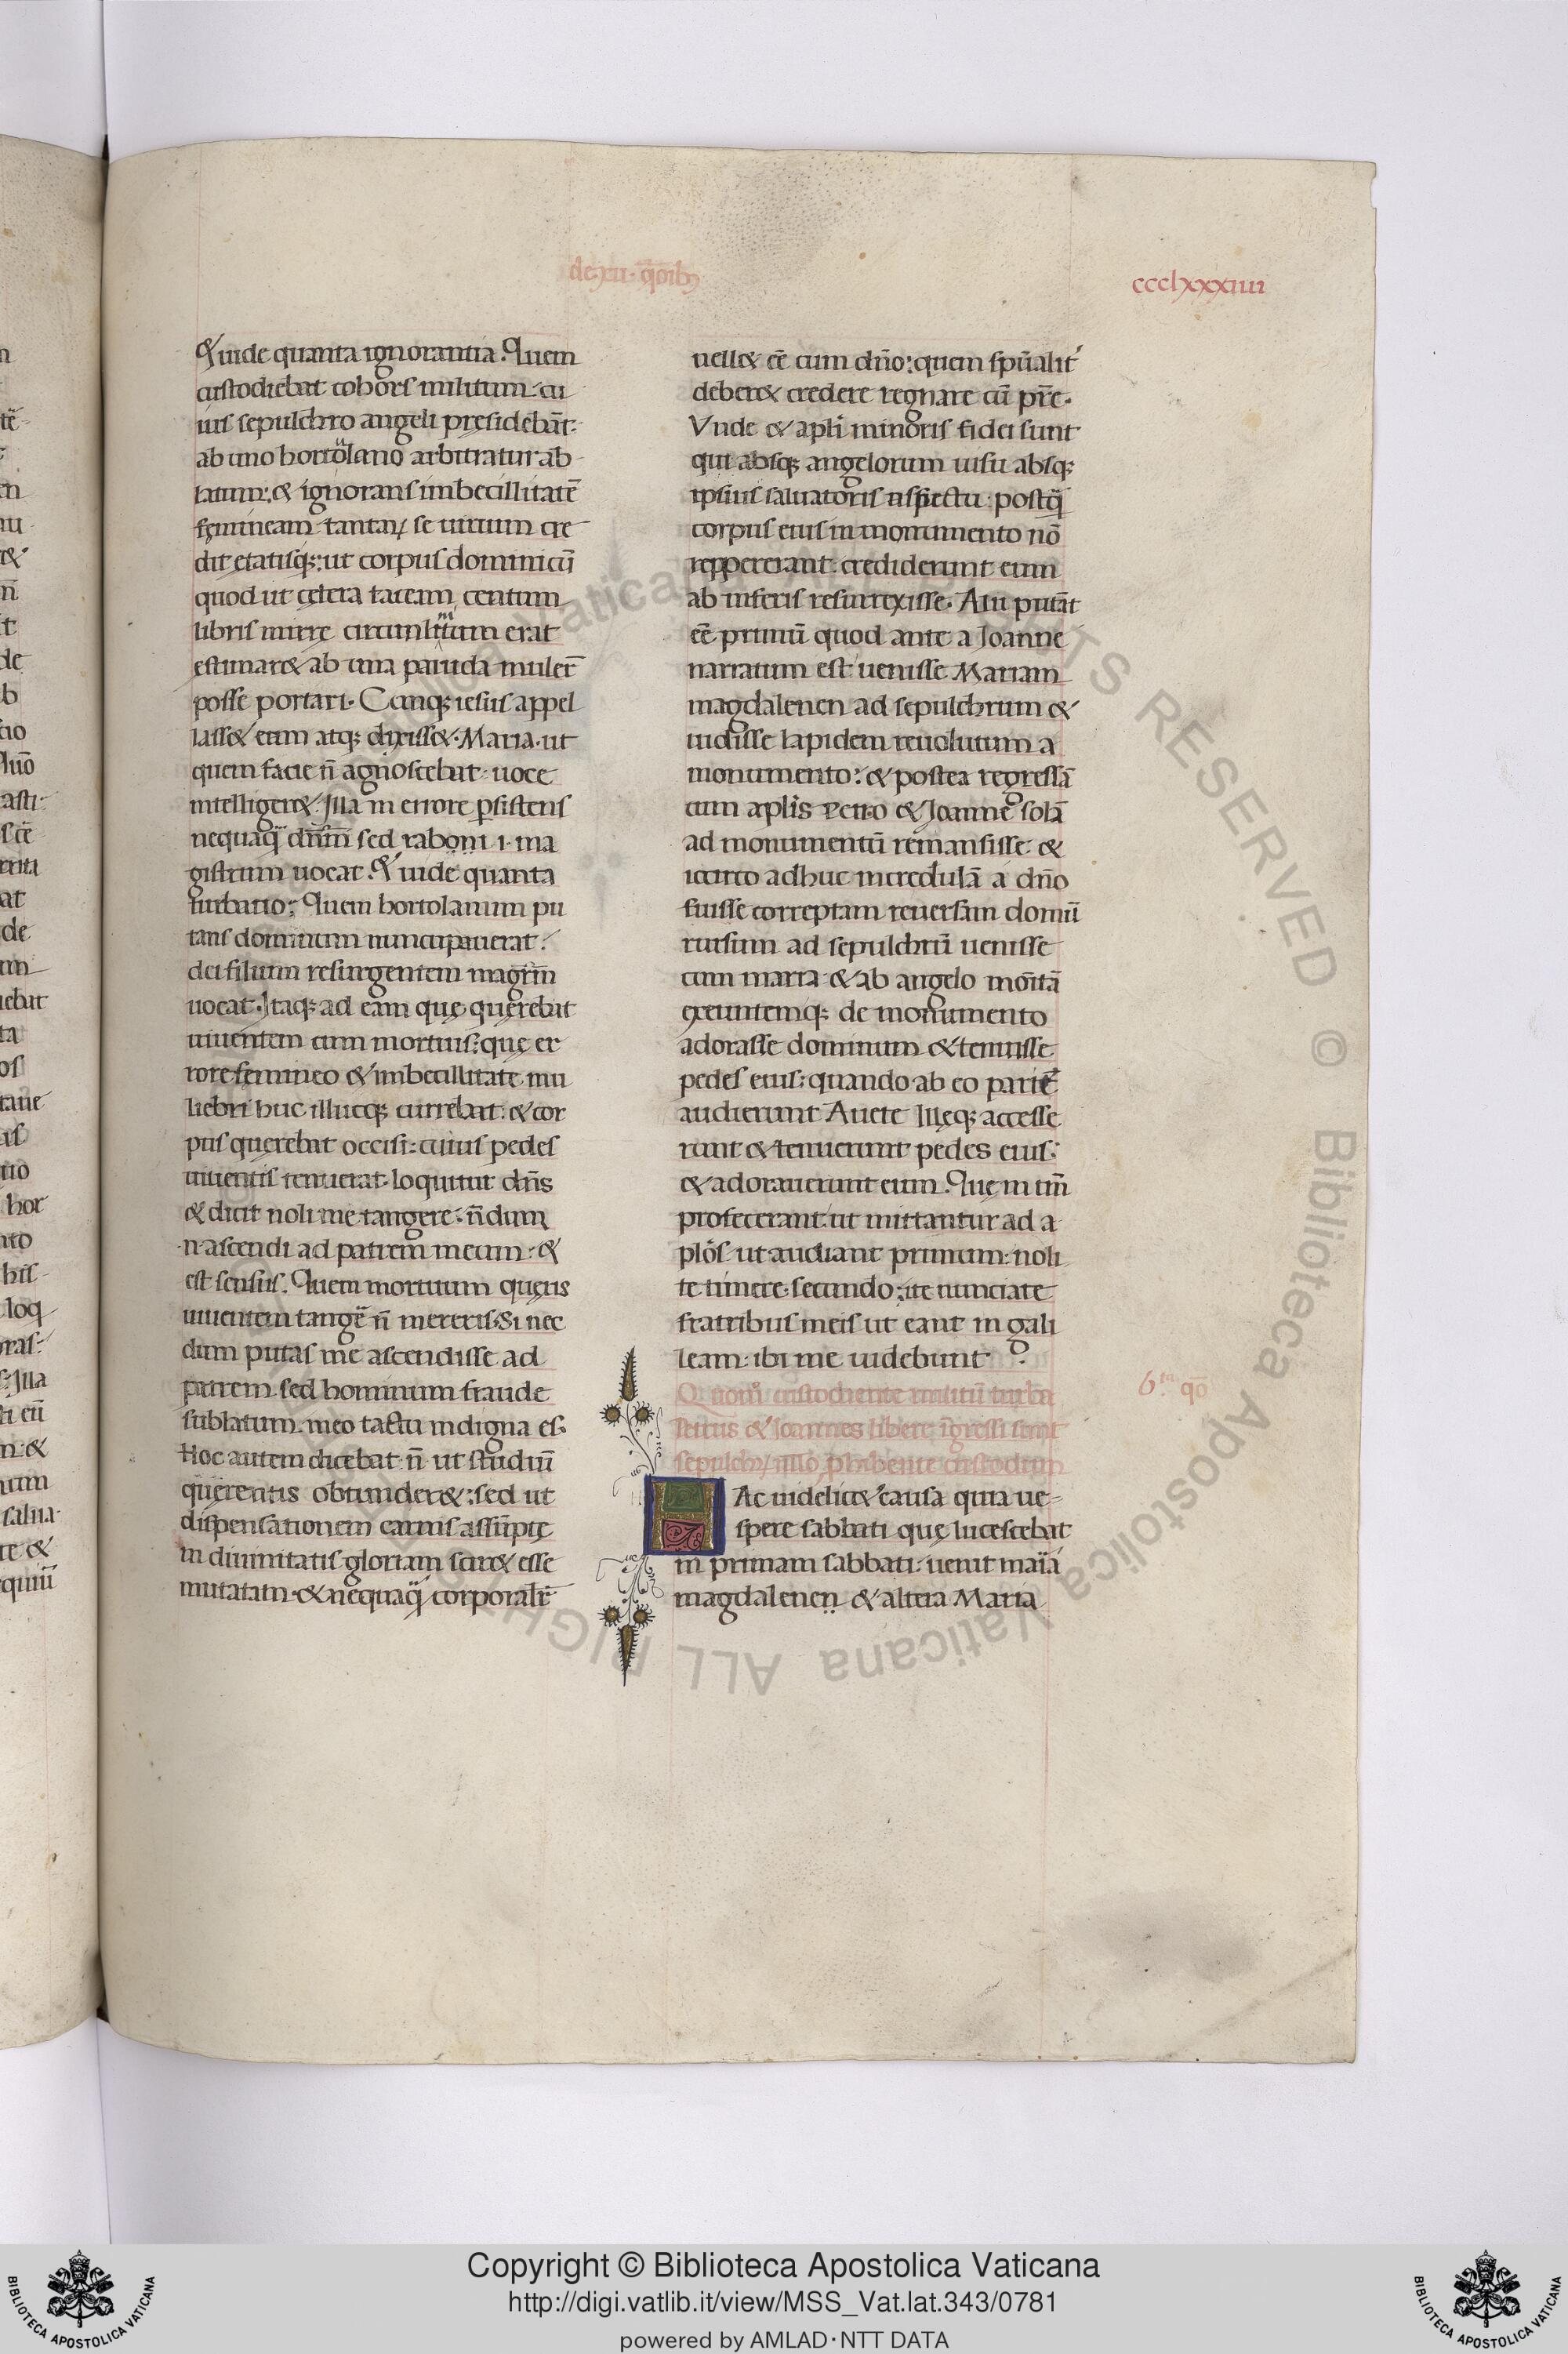 de xii. q̄oib;
ccclxxxiiii
& uide quanta ignorantia. Quem
custodiebat cohors militum. cu
ius sepulchro angeli pręsidebāt:
ab uno hortolano arbitratur ab
latum: & ignorans imbecillitatē
femineam. tantaꝝ se uirium cre
dit etatisq;: ut corpus dominicū
quod ut cętera taceam, centum
libris mirrę circumlitum erat
estimar& ab una pauida muliere
posse portari. Cunq; iesus appel
lass& eam atq; dixiss&. Maria. ut
quem facie n̄ agnoscebat: uoce
intelliger&. Illa in errore ꝑsistens
nequaq̄ dn̄m sed raboni .i. ma
gistrum uocat. & uide quanta
turbatio: Quem hortolanum pu
tans dominum nuncupauerat:
dei filium resurgentem magrm̄
uocat. Itaq; ad eam quę quęrebat
uiuentem cum mortuis: quę er
rore femineo & imbecillitate mu
liebri huc illucq; currebat: & cor
pus querebat occisi: cuius pedes
uiuentis tenuerat. loquitur dn̄s
& dicit noli me tangere: n̄dum
n. ascendi ad patrem meum. &
est sensus. Quem mortuum quęris
uiuentem tangē n̄ mereris. Si nec
dum putas me ascendisse ad
patrem. sed hominum fraude
sublatum. meo tactu indigna es.
Hoc autem dicebat. n̄ ut studiū
quęrentis obtunder&: sed ut
dispensationem carnis assūptę
in diuinitatis gloriam scir& esse
mutatam. & nequaq̄ corporalit̄
uell& eē cum dn̄o: quem spūalit̄
deber& credere regnare cū pr̄e.
Vnde & apl̄i minoris fidei sunt
qui absq; angelorum uisu absq;
ipsius saluatoris aspectu: postq̄
corpus eius in monumento nō
reppererant. crediderunt eum
ab inferis resurrexisse. Alii putāt
eē primū quod ante a Joanne
narratum est uenisse Mariam
magdalenen ad sepulchrum &
uidisse lapidem reuolutum a
monumento: & postea regressā
cum apl̄is Petro & Joanne solā
ad monumentū remansisse. &
iccirco adhuc incredulā a dn̄o
fuisse correptam reuersam domū
rursum ad sepulchrū uenisse
cum maria. & ab angelo monitā
exeuntemq; de monumento
adorasse dominum & tenuisse
pedes eius: quando ab eo pariē
audierunt Auete Illęq; accesse
runt & tenuerunt pedes eius:
& adorauerunt eum. Quę in tm̄
profecerant: ut mittantur ad a
pl̄os. ut audiant primum: noli
te timere. secundo: ite nunciate
fratribus meis ut eant in gali
leam: ibi me uidebunt.
Quom̄ custodiente militū turba
petrus & Joannes libere īgressi sunt
6.ta qō
Ac uidelic& causa quia ue-
spere sabbati quę lucescebat
in primam sabbati. uenit maria
magdalenen & altera Maria
Copyright © Biblioteca Apostolica Vaticana
http://digi.vatlib.it/view/MSS_Vat.lat.343/0781
powered by AMLAD·NTT DATA
BIBLIOTECA APOSTOLICA VATICANA
BIBLIOTECA APOSTOLICA VATICANA